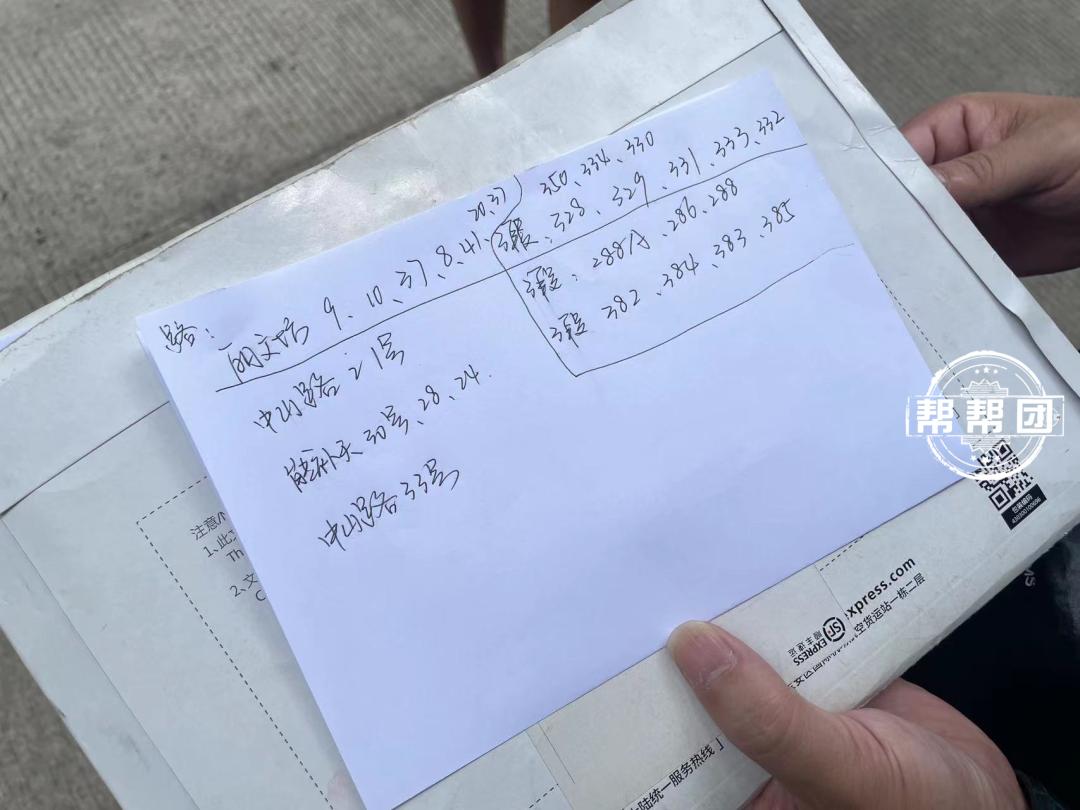 20.37
350、334、330
路: 文坊 9、10、37、8、41、
328、329、331、333、332
288A、286、288
382、384、383、385
中山路21号
30号、28、24.
中山路33号
帮帮团
注意
1、此
Th
2、文
C
包装编码
xpress.com
SF
EXPRESS
顺丰速运
空货运站一栋二层
大陆统一服务热线」